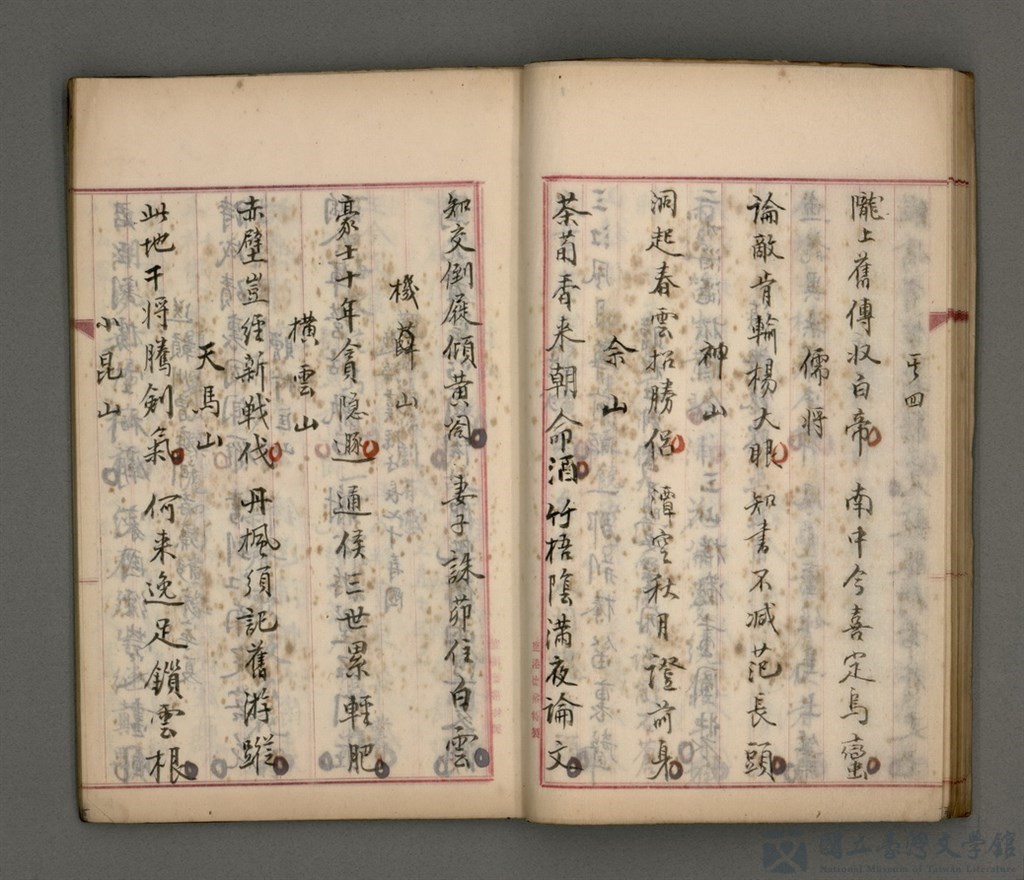 其四
隴上舊傳收白帝 南中今喜定烏蠻
儒将
論敵肯輸楊大眼 知書不減范長頭
神山
洞起春雲招勝侣 潭空秋月證前身
佘山
茶筍香来朝命酒 竹梧陰滿夜論文
知交倒屐傾黄閣 妻子誅茆住白雲
機山
豪士十年貪隐遯 通侯三世累輕肥
橫雲山
赤壁豈經新戦伐 丹楓須記舊游蹤
天馬山
此地干将騰劍氣 何来逸足鎖雲根
小昆山
國立臺灣文學館
National Museum of Taiwan Literature